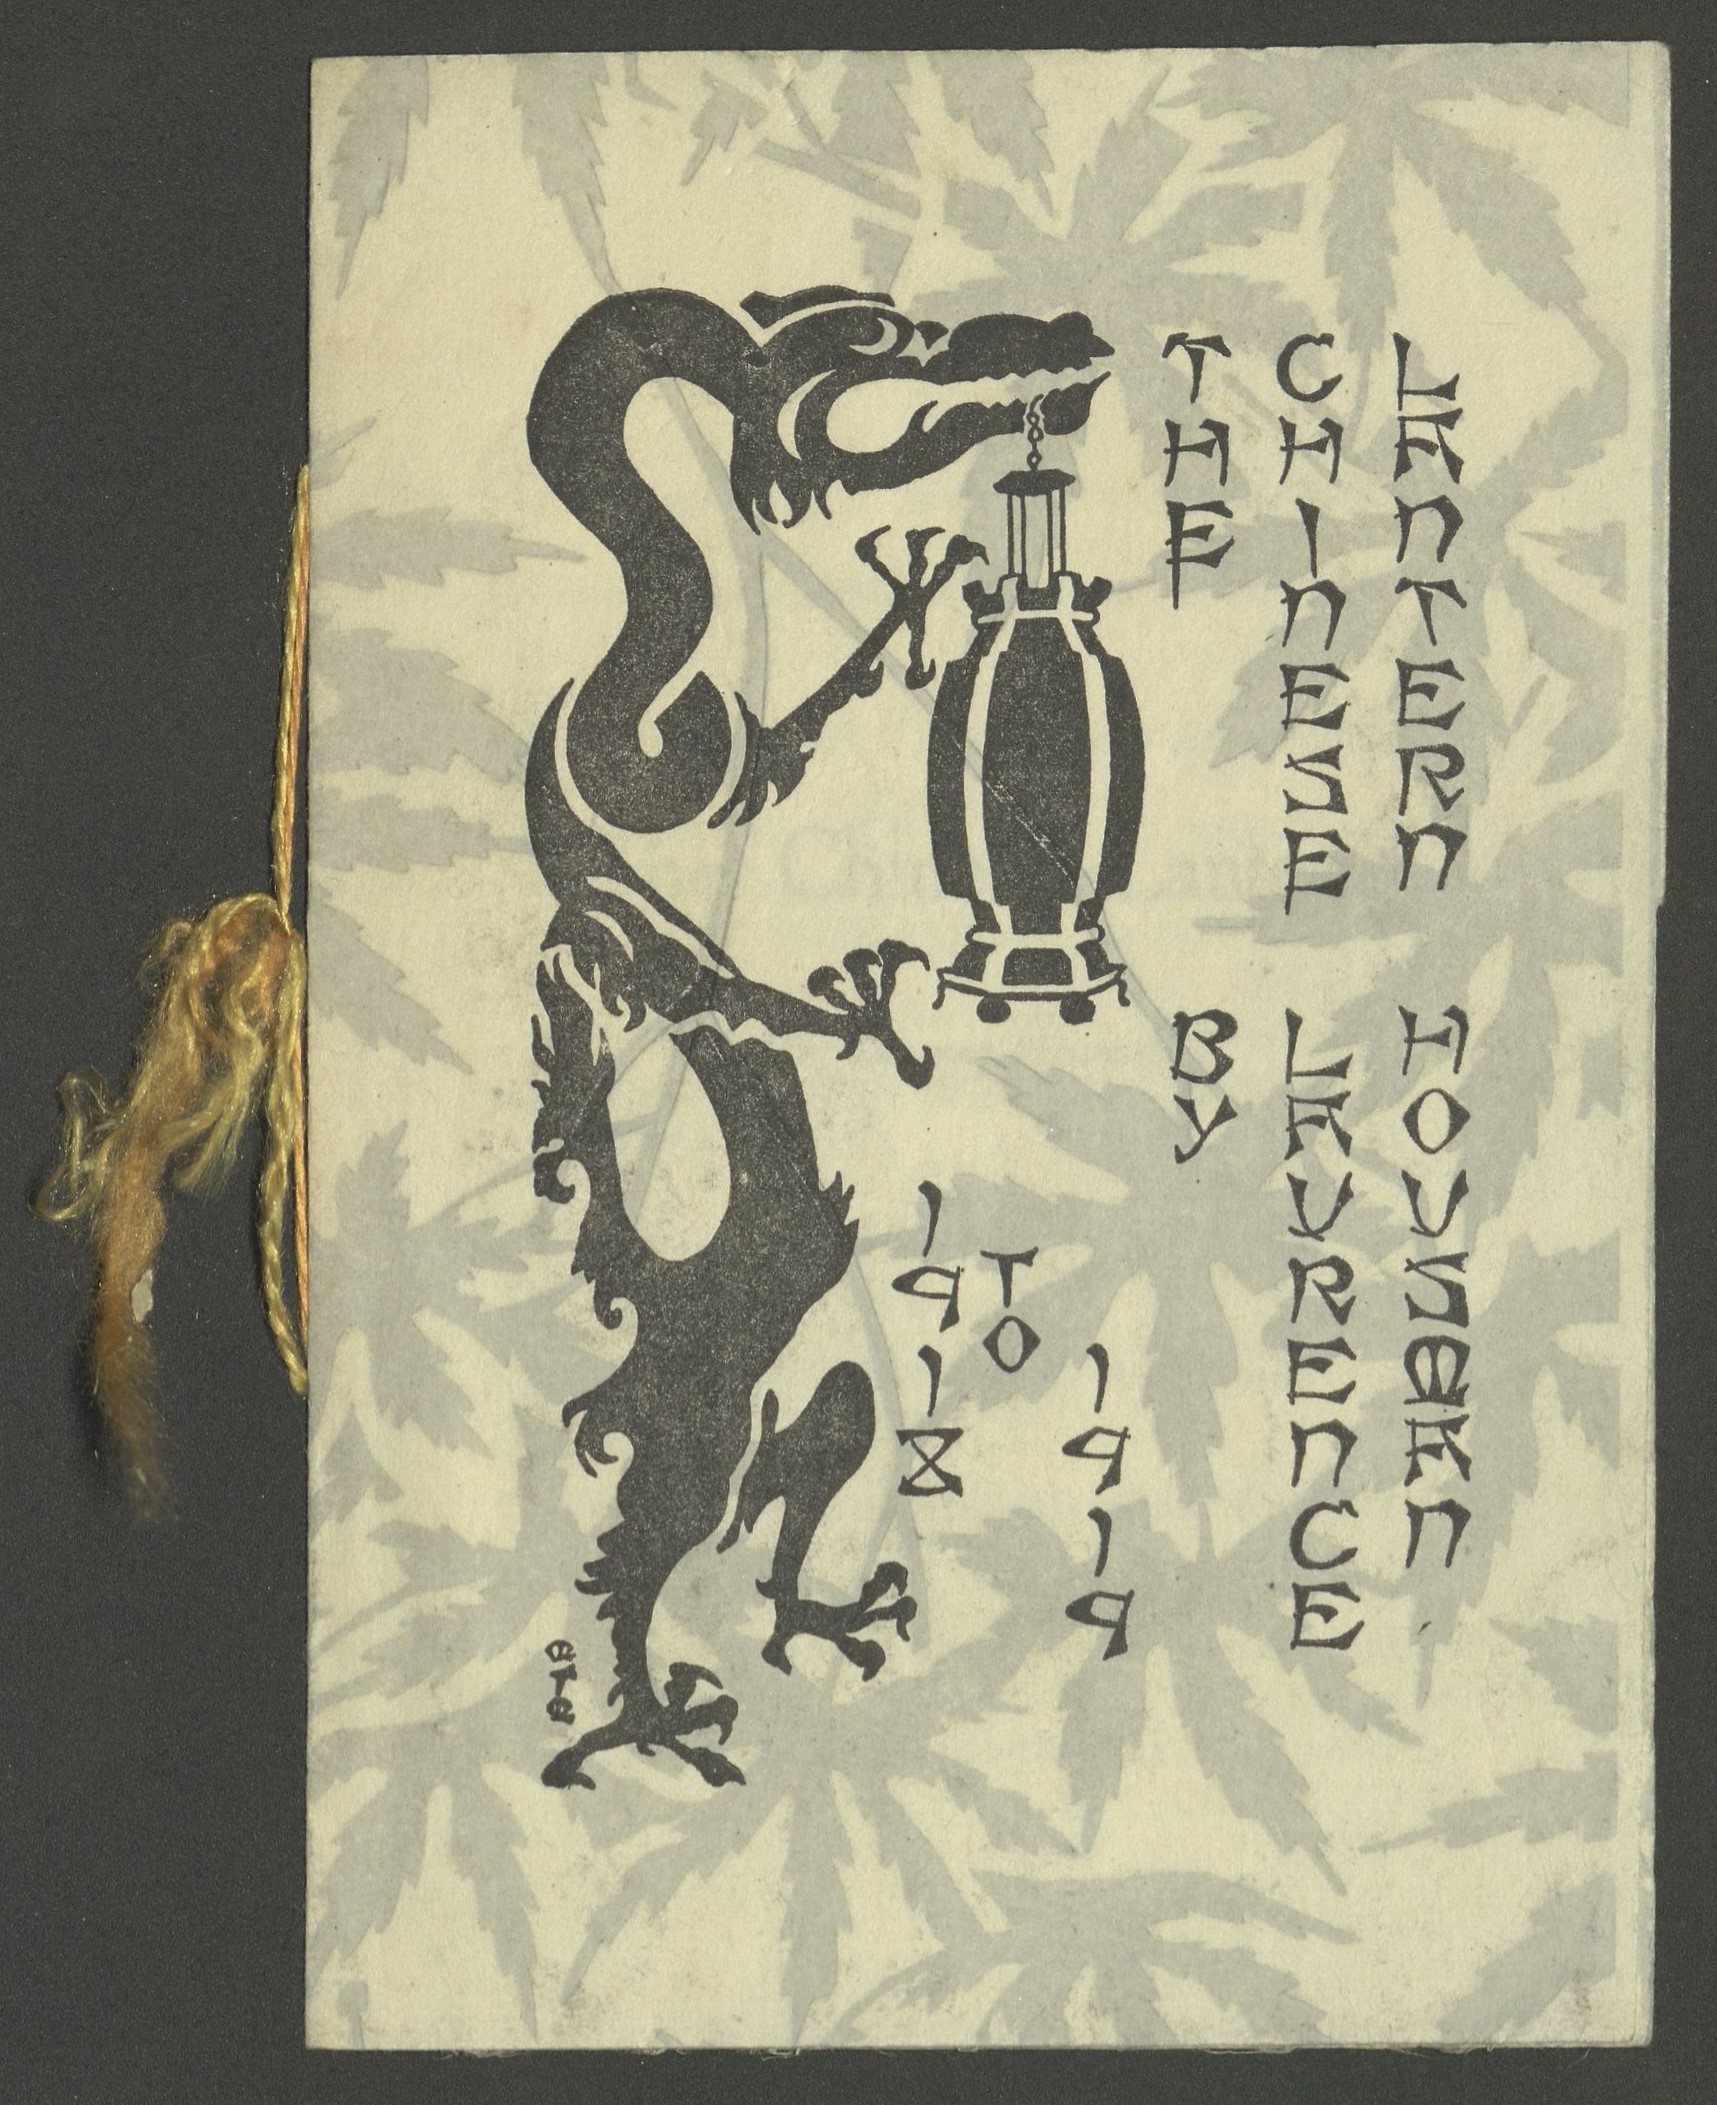 THE
CHINESE
LANTERN
BY
LAURENCE
HOUSMAN
1918
TO
1919